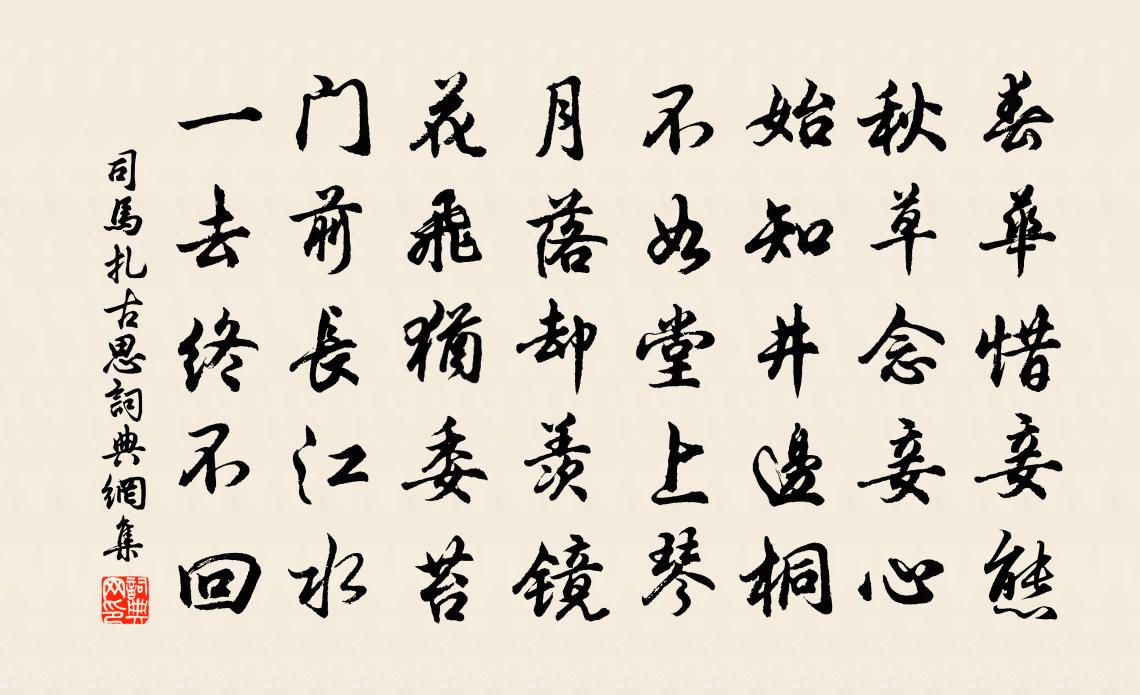 春華惜妾態
秋草念妾心
始知井邊桐
不如堂上琴
月落却羨镜
花飛猶委苔
门前長江水
一去终不回
司馬扎古思詞典網集
詞典网印